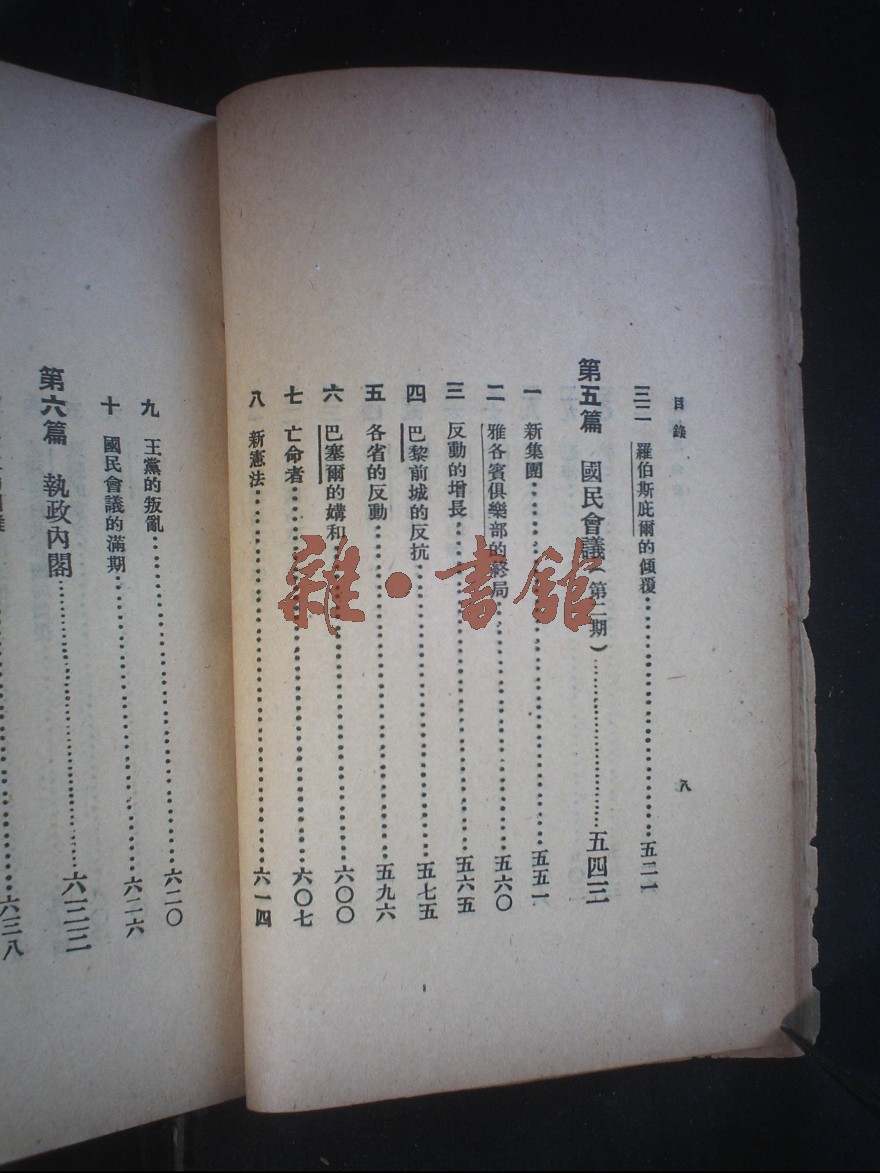 目錄
八
三二 羅伯斯庇爾的傾覆……五二一
第五篇 國民會議(第二期)……五四三
一 新集團……五五一
二 雅各賓俱樂部的終局……五六〇
三 反動的增長……五六五
四 巴黎前城的反抗……五七五
五 各省的反動……五九六
六 巴塞爾的媾和……六〇〇
七 亡命者……六〇七
八 新憲法……六一四
九 王黨的叛亂……六二〇
十 國民會議的滿期……六二六
第六篇 執政內閣……六三三
……六三八
雜·書館